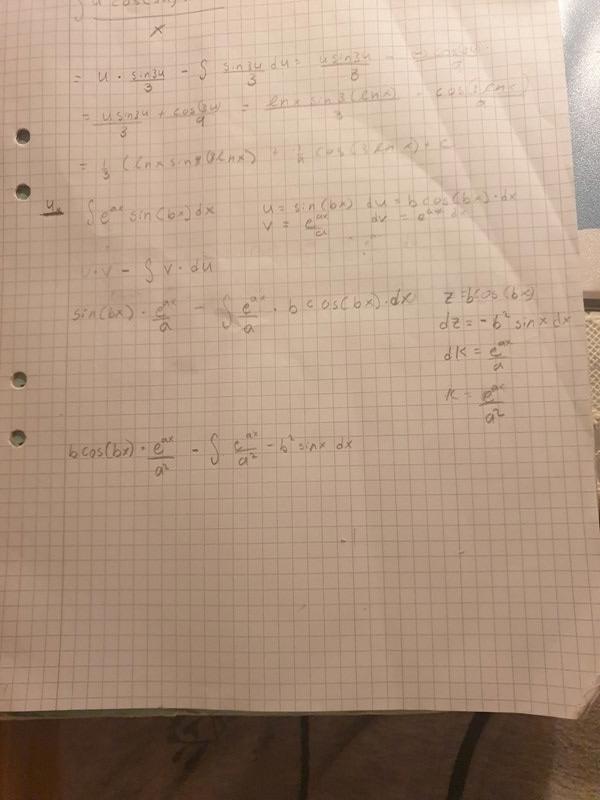 x
= u · sin3u/3 - ∫ sin3u/3 du = usin3u/3 -
= usin3u/3 + cos3u/9 = lnx sin3(lnx)/3 - cos(3lnx)/9
= 1/3 (lnx sin(3lnx) + 1/9 cos(3lnx) + c
4. ∫ e^ax sin(bx)dx u = sin(bx) du = b cos(bx)·dx
v = e^ax/a dv = e^ax dx
u·v - ∫ v·du
sin(bx) · e^ax/a - ∫ e^ax/a · b cos(bx)·dx z = bcos(bx)
dz = -b² sinx dx
dk = e^ax/a
k = e^ax/a²
b cos(bx) · e^ax/a² - ∫ e^ax/a² - b² sinx dx